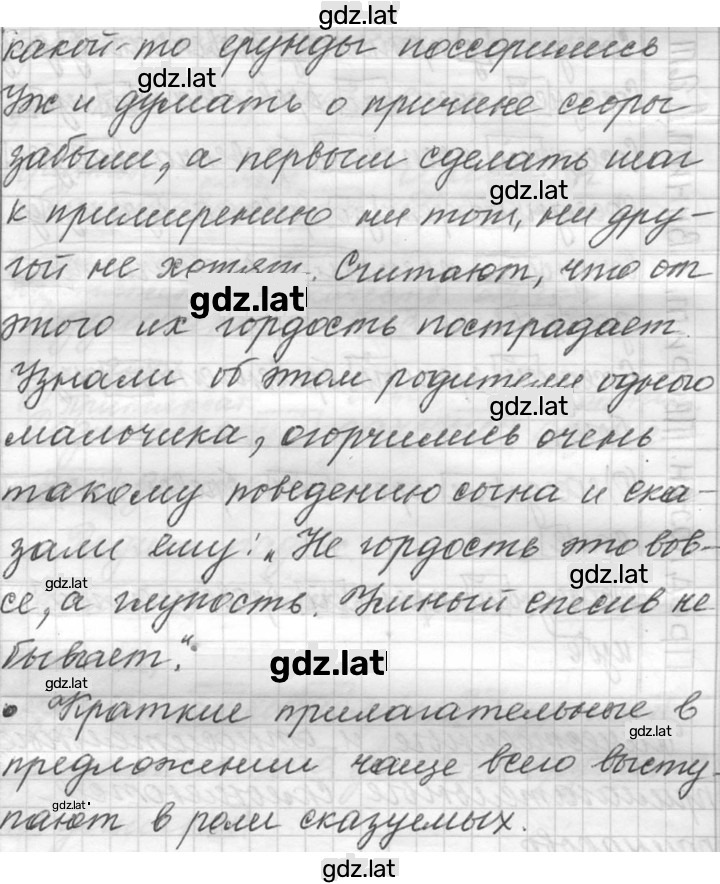 gdz.lat
какой-то ерунды поссорились
gdz.lat
Уж и думать о причине ссоры
забыли, а первым сделать шаг
gdz.lat
к примирению ни тот, ни дру-
гой не хотят. Считают, что от
gdz.lat
этого их гордость пострадает.
Узнали об этом родители одного
gdz.lat
мальчика, огорчились очень
такому поведению сына и ска-
зали ему: „Не гордость это вов-
gdz.lat
gdz.lat
се, а глупость. Умный спесив не
бывает."
gdz.lat
gdz.lat
• Краткие прилагательные в
gdz.lat
предложении чаще всего высту-
gdz.lat
пают в роли сказуемых.
gdz.lat